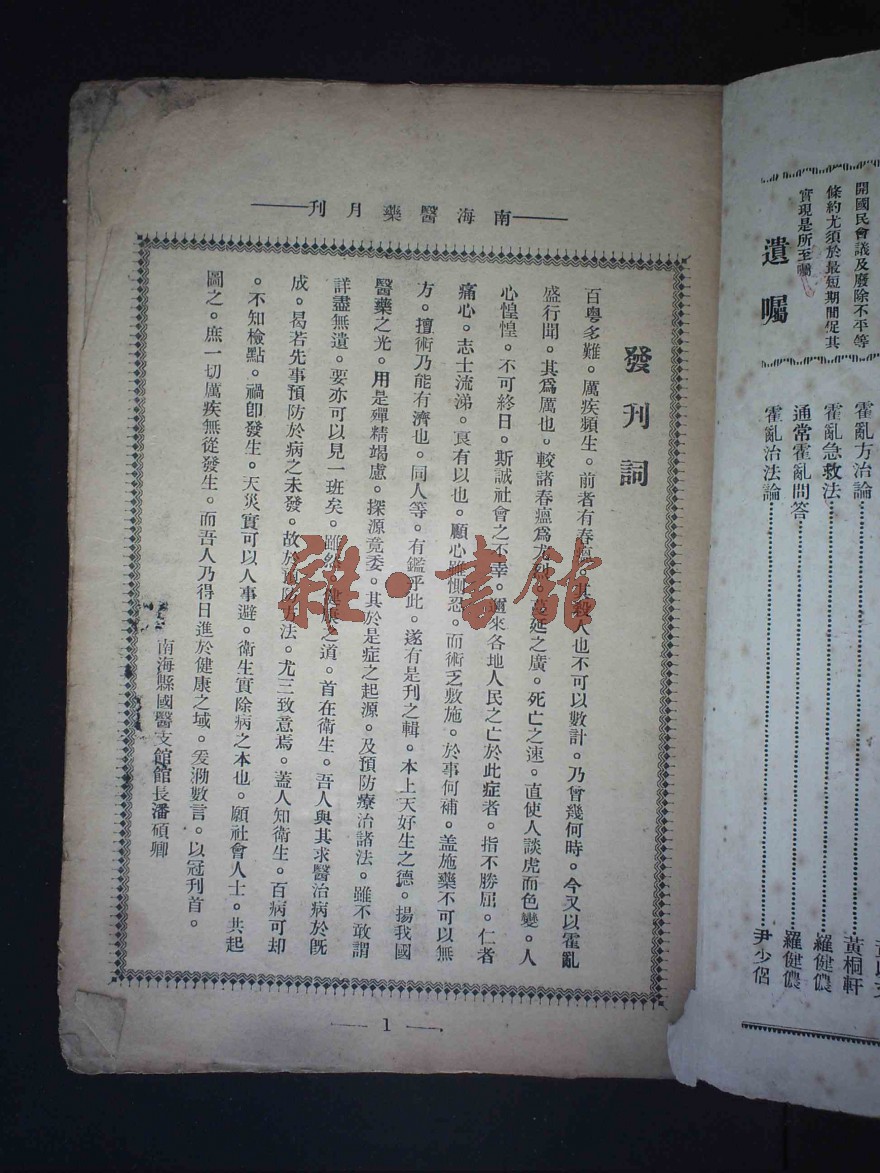 南海醫藥月刊
發刊詞
百粤多難。厲疾頻生。前者有春瘟。其殺人也不可以數計。乃曾幾何時。今又以霍亂
盛行聞。其爲厲也。較諸春瘟爲尤烈。延之廣。死亡之速。直使人談虎而色變。人
心惶惶。不可終日。斯誠社會之不幸。邇來各地人民之亡於此症者。指不勝屈。仁者
痛心。志士流涕。良有以也。顧心雖惻忍。而術乏敷施。於事何補。盖施藥不可以無
方。擅術乃能有濟也。同人等。有鑑乎此。遂有是刊之輯。本上天好生之德。揚我國
醫藥之光。用是殫精竭慮。探源竟委。其於是症之起源。及預防療治諸法。雖不敢謂
詳盡無遺。要亦可以見一班矣。雖然。健康之道。首在衛生。吾人與其求醫治病於旣
成。曷若先事預防於病之未發。故於預防方法。尤三致意焉。蓋人知衛生。百病可却
。不知檢點。禍卽發生。天災實可以人事避。衛生實除病之本也。願社會人士。共起
圖之。庶一切厲疾無從發生。而吾人乃得日進於健康之域。爰泐數言。以冠刊首。
南海縣國醫支館館長潘碩卿
1
開國民會議及廢除不平等
條約尤須於最短期間促其
實現是所至囑
遺囑
霍亂方治論
黃桐軒
霍亂急救法
羅健儂
通常霍亂問答
羅健儂
霍亂治法論
尹少侶
雜·書館